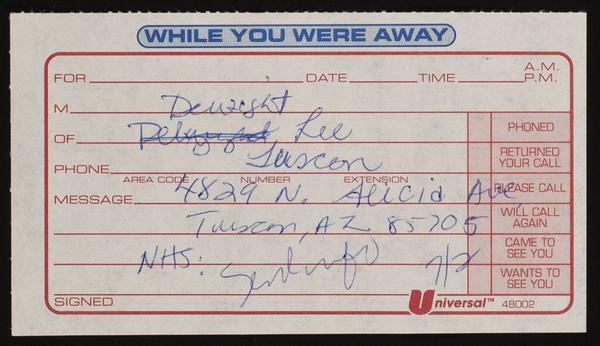 WHILE YOU WERE AWAY
FOR DATE TIME A.M. P.M.
M Dewight
OF Lee
PHONED
PHONE Tuscon
AREA CODE NUMBER EXTENSION
RETURNED YOUR CALL
MESSAGE 4829 N. Alicia Ave,
PLEASE CALL
Tuscon, AZ 85705
WILL CALL AGAIN
NHS: Send info 7/2
CAME TO SEE YOU
WANTS TO SEE YOU
SIGNED
Universal™ 48002